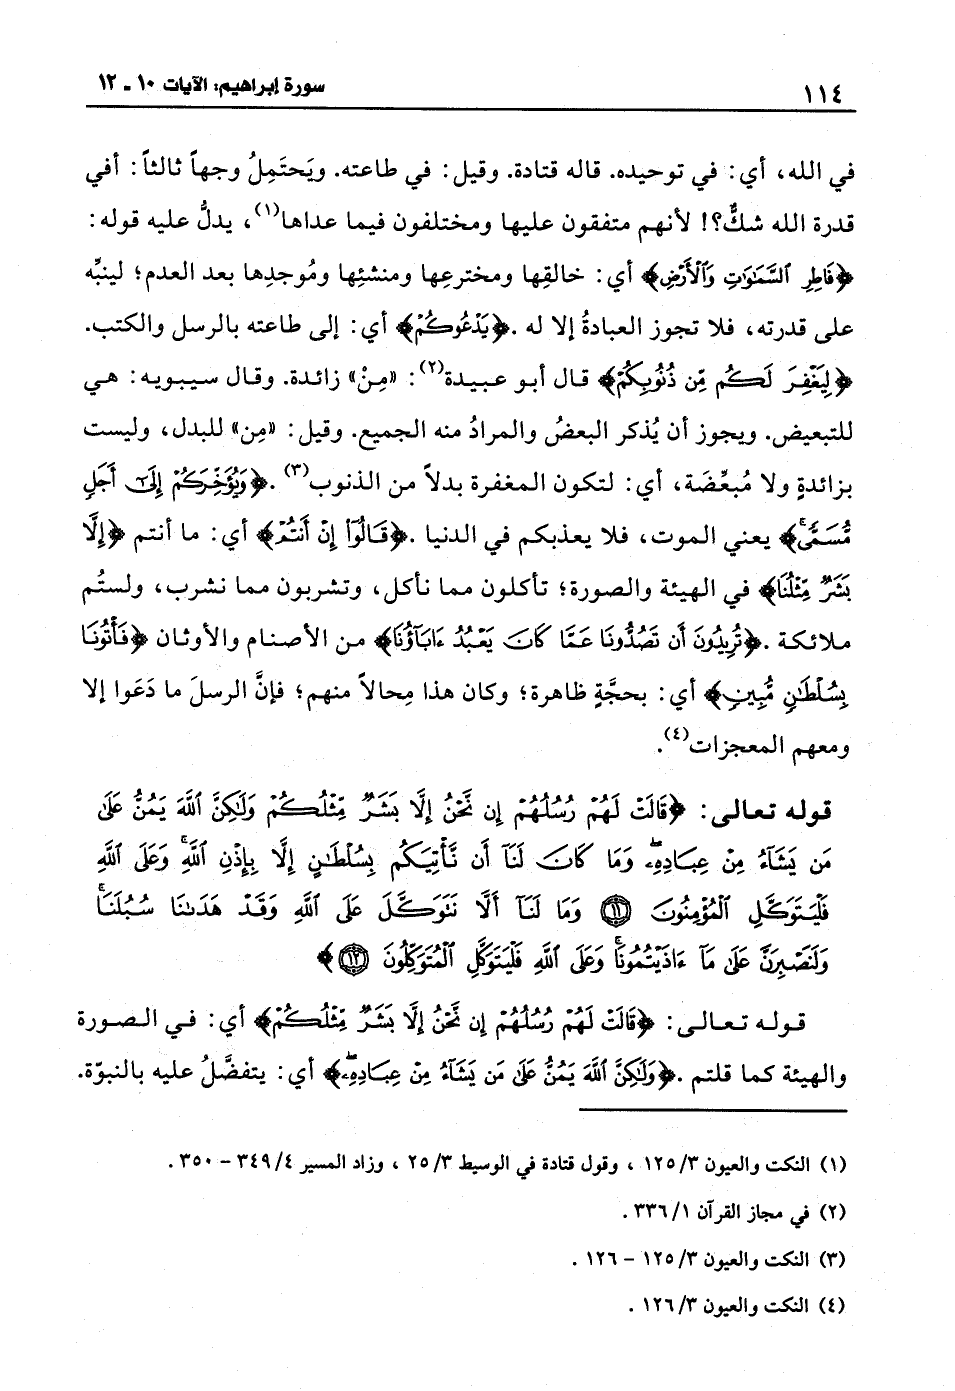 ١١٤
سورة إبراهيم: الآيات ١٠ ـ ١٢
في الله، أي: في توحيده. قاله قتادة. وقيل: في طاعته. ويَحتَمِلُ وجهاً ثالثاً: أفي
قدرة الله شكٌّ؟! لأنهم متفقون عليها ومختلفون فيما عداها(١)، يدلُّ عليه قوله:
﴿فَاطِرِ السَّمَوَاتِ وَالْأَرْضِ﴾ أي: خالقِها ومخترعِها ومنشئِها ومُوجدِها بعد العدم؛ لينبِّه
على قدرته، فلا تجوز العبادةُ إلا له. ﴿يَدْعُوكُمْ﴾ أي: إلى طاعته بالرسل والكتب.
﴿لِيَغْفِرَ لَكُم مِّن ذُنُوبِكُمْ﴾ قال أبو عبيدة(٢): «مِنْ» زائدة. وقال سيبويه: هي
للتبعيض. ويجوز أن يُذكر البعضُ والمرادُ منه الجميع. وقيل: «مِن» للبدل، وليست
بزائدةٍ ولا مُبعِّضَة، أي: لتكون المغفرة بدلاً من الذنوب(٣). ﴿وَيُؤَخِّرَكُمْ إِلَىٰٓ أَجَلٍ
مُّسَمًّى﴾ يعني الموت، فلا يعذبكم في الدنيا. ﴿قَالُوٓا إِنْ أَنتُمْ﴾ أي: ما أنتم ﴿إِلَّا
بَشَرٌ مِّثْلُنَا﴾ في الهيئة والصورة؛ تأكلون مما نأكل، وتشربون مما نشرب، ولستُم
ملائكة. ﴿تُرِيدُونَ أَن تَصُدُّونَا عَمَّا كَانَ يَعْبُدُ ءَابَآؤُنَا﴾ من الأصنام والأوثان ﴿فَأْتُونَا
بِسُلْطَٰنٍ مُّبِينٍ﴾ أي: بحجَّةٍ ظاهرة؛ وكان هذا مِحالاً منهم؛ فإنَّ الرسلَ ما دَعَوا إلا
ومعهم المعجزات(٤).
قوله تعالى: ﴿قَالَتْ لَهُمْ رُسُلُهُمْ إِن نَّحْنُ إِلَّا بَشَرٌ مِّثْلُكُمْ وَلَٰكِنَّ اللَّهَ يَمُنُّ عَلَىٰ
مَن يَشَآءُ مِنْ عِبَادِهِۦ وَمَا كَانَ لَنَآ أَن نَّأْتِيَكُم بِسُلْطَٰنٍ إِلَّا بِإِذْنِ اللَّهِ وَعَلَى اللَّهِ
فَلْيَتَوَكَّلِ الْمُؤْمِنُونَ ۝١١ وَمَا لَنَآ أَلَّا نَتَوَكَّلَ عَلَى اللَّهِ وَقَدْ هَدَىٰنَا سُبُلَنَا
وَلَنَصْبِرَنَّ عَلَىٰ مَآ ءَاذَيْتُمُونَا وَعَلَى اللَّهِ فَلْيَتَوَكَّلِ الْمُتَوَكِّلُونَ ۝١٢﴾
قوله تعالى: ﴿قَالَتْ لَهُمْ رُسُلُهُمْ إِن نَّحْنُ إِلَّا بَشَرٌ مِّثْلُكُمْ﴾ أي: في الصورة
والهيئة كما قلتم. ﴿وَلَٰكِنَّ اللَّهَ يَمُنُّ عَلَىٰ مَن يَشَآءُ مِنْ عِبَادِهِۦ﴾ أي: يتفضَّلُ عليه بالنبوّة.
(١) النكت والعيون ٣/ ١٢٥ ، وقول قتادة في الوسيط ٣/ ٢٥ ، وزاد المسير ٤/ ٣٤٩ - ٣٥٠ .
(٢) في مجاز القرآن ١/ ٣٣٦ .
(٣) النكت والعيون ٣/ ١٢٥ - ١٢٦ .
(٤) النكت والعيون ٣/ ١٢٦ .